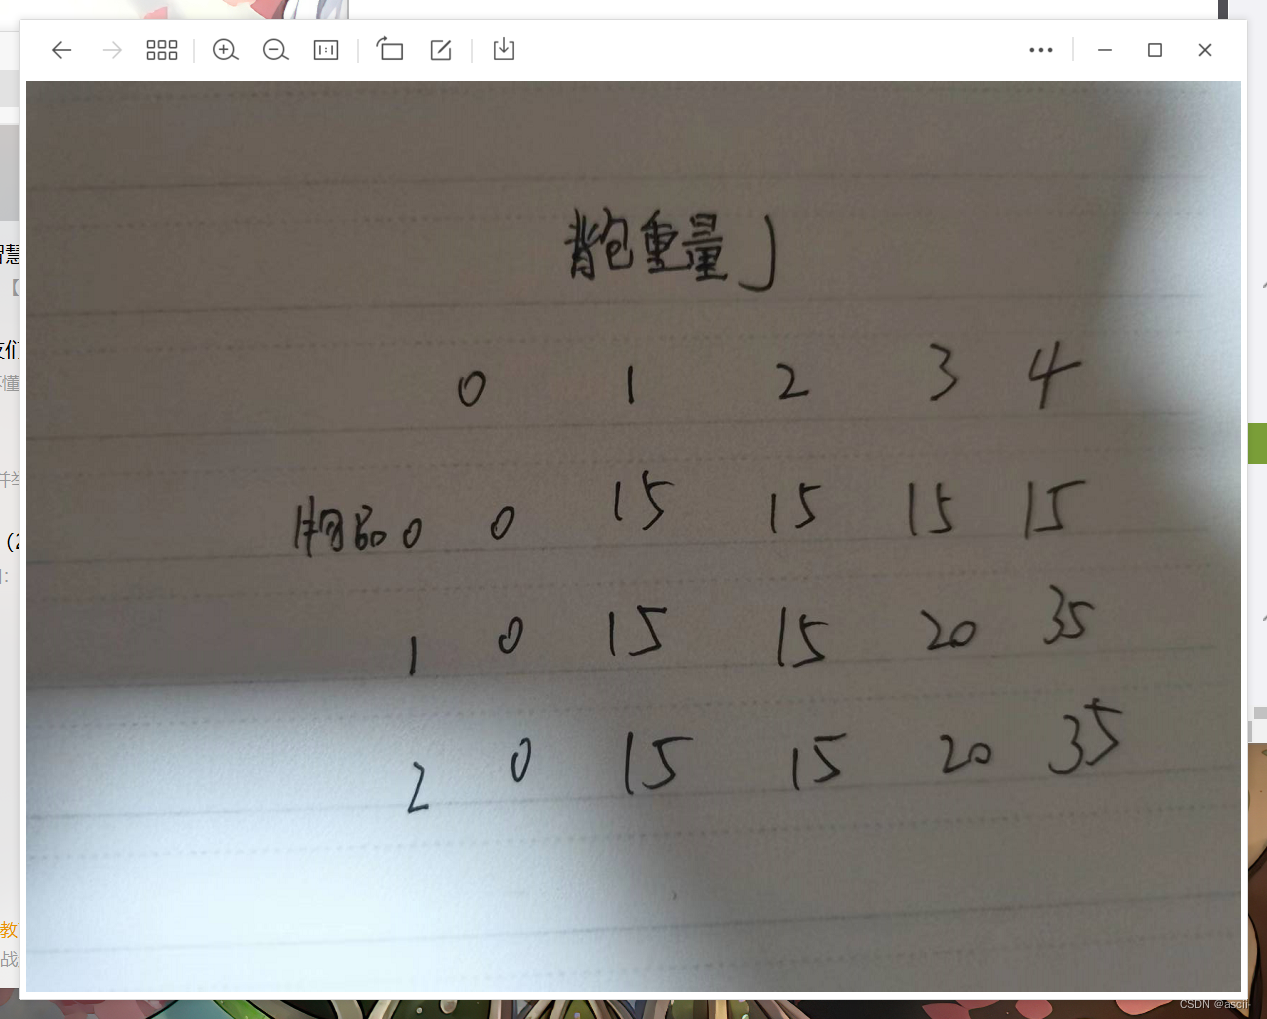 背包重量 J
0 1 2 3 4
物品 0 0 15 15 15 15
1 0 15 15 20 35
2 0 15 15 20 35
智慧
【
友们
懂
并举
(2
教
战
CSDN @ascjj